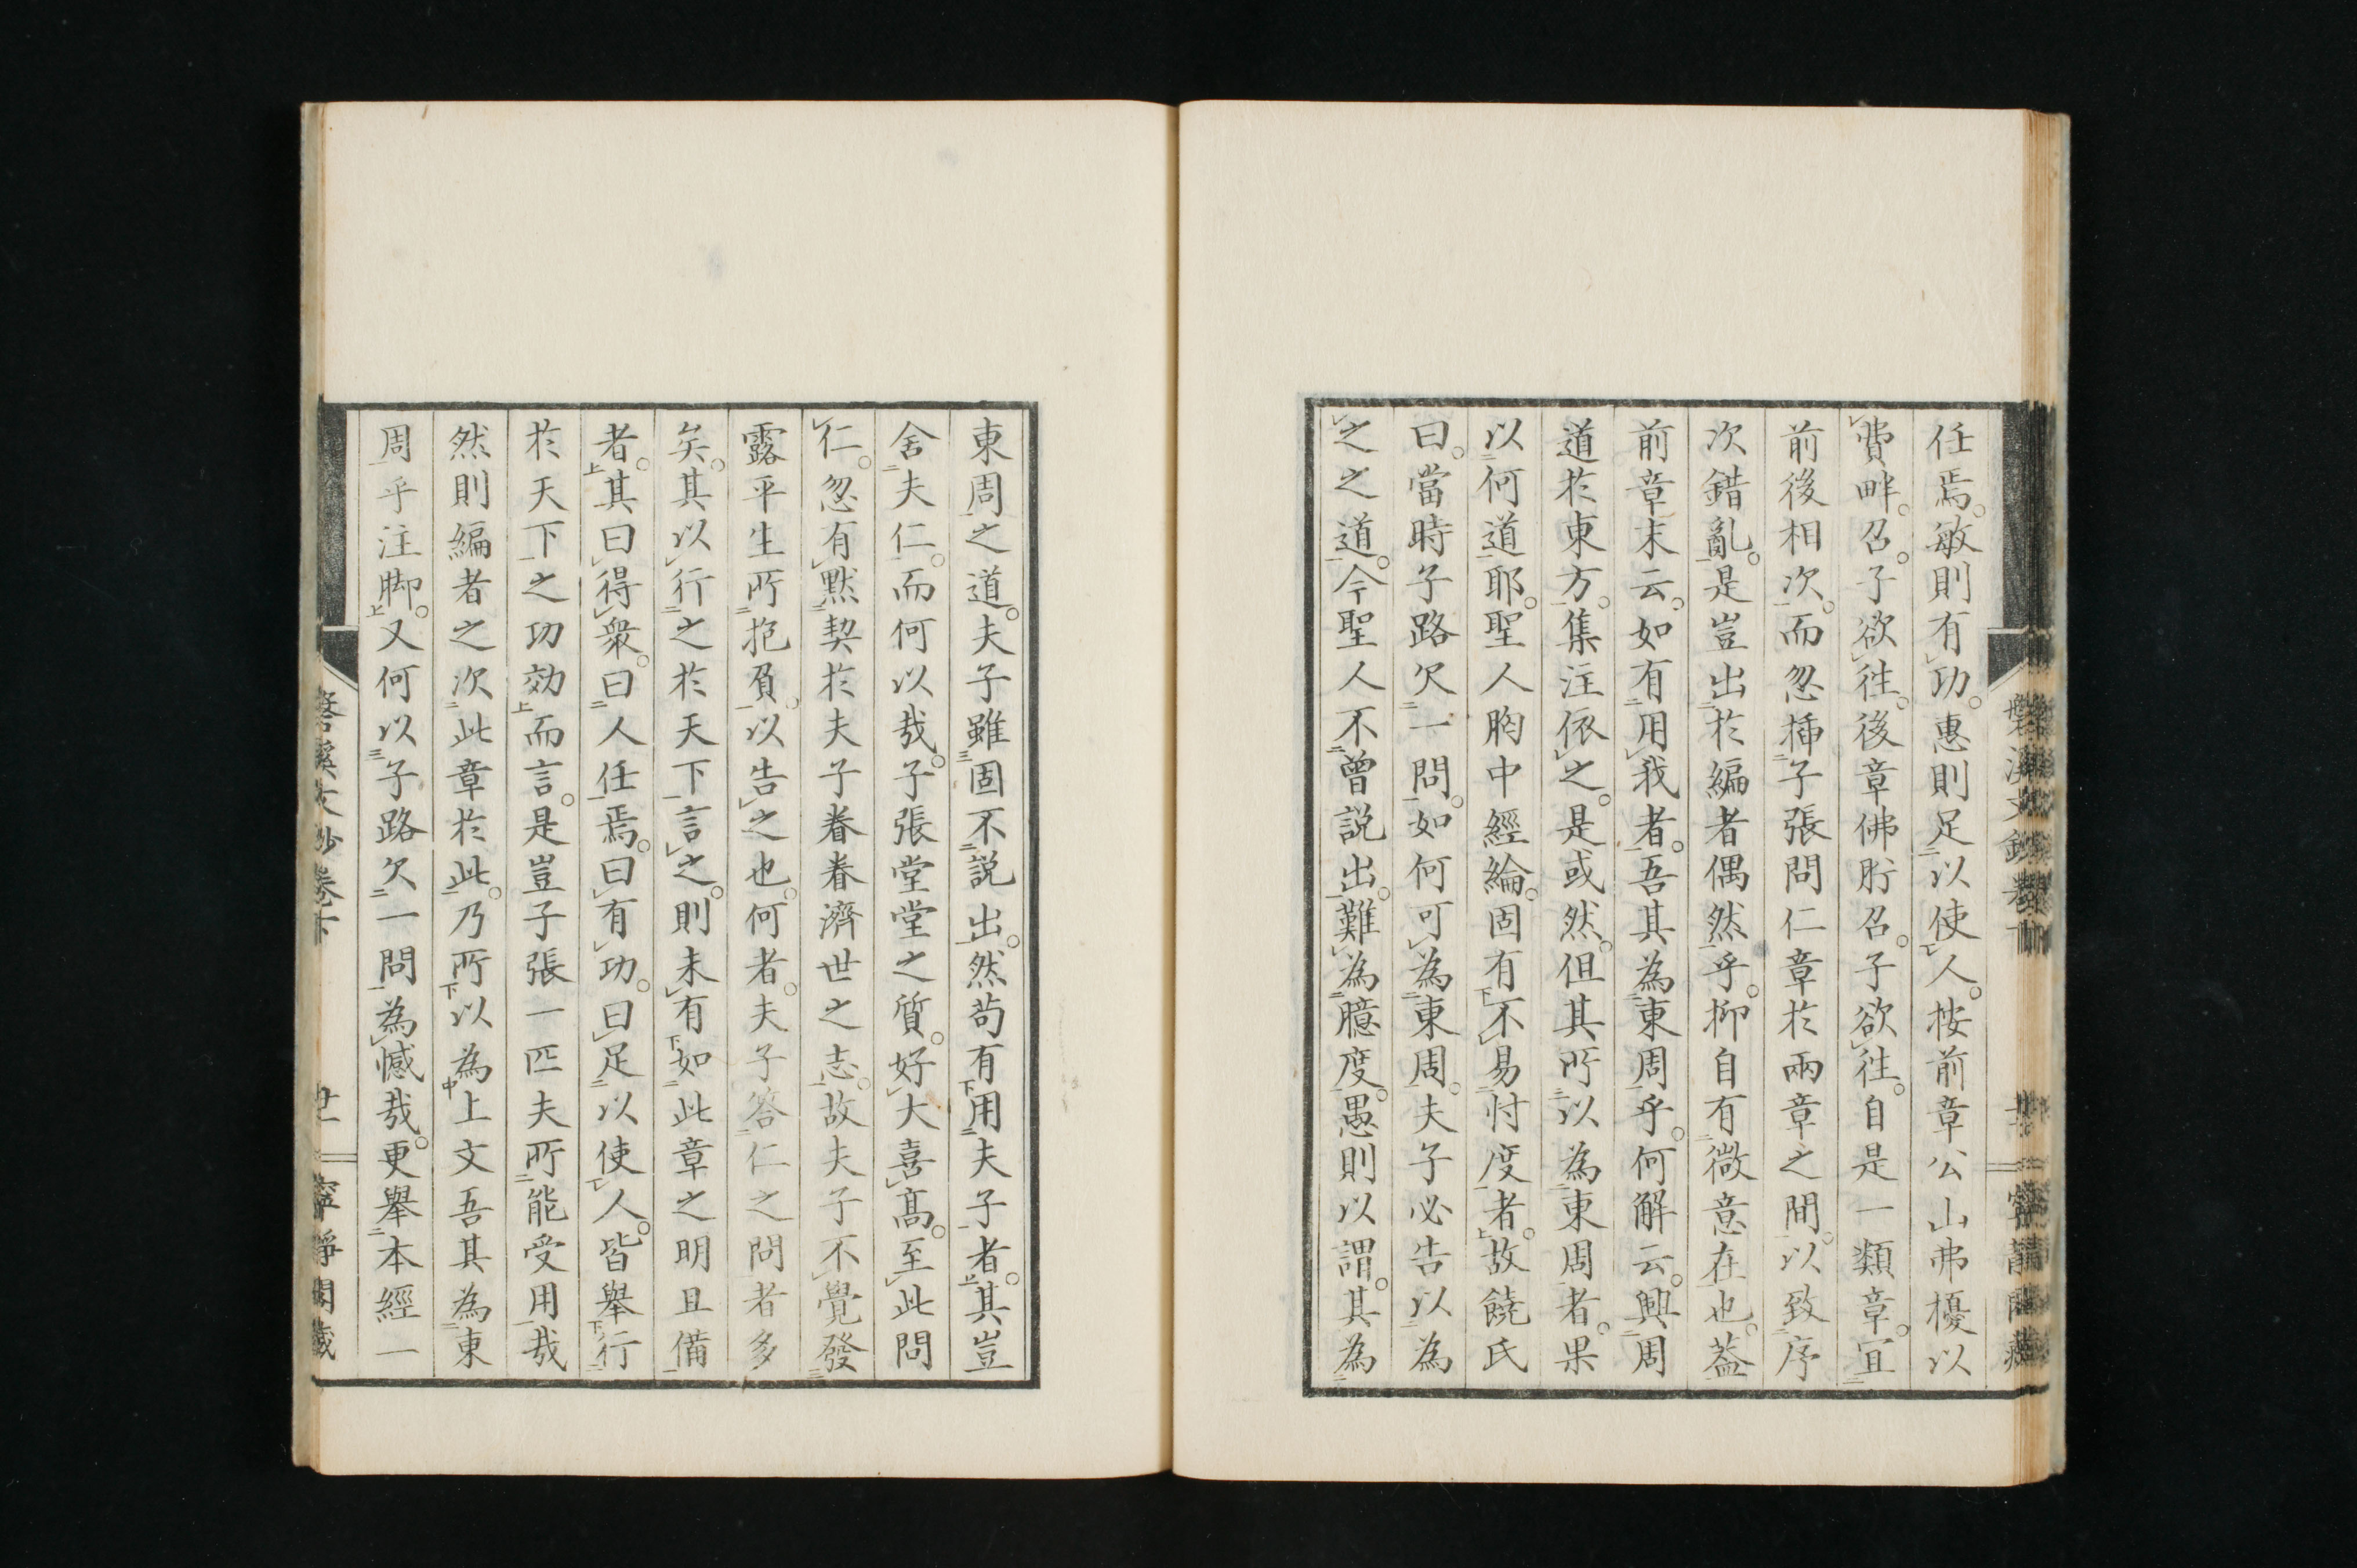 任焉。敏則有功。惠則足以使人。按前章公山弗擾以
費畔。召。子欲徃。後章佛肸召。子欲徃。自是一類章。宜
前後相次。而忽插子張問仁章於兩章之間。以致序
次錯亂。是豈出於編者偶然乎。抑自有微意在也。葢
前章末云。如有用我者。吾其為東周乎。何解云。興周
道於東方。集注依之。是或然。但其所以為東周者。果
以何道耶。聖人胸中經綸。固有不易忖度者。故饒氏
曰。當時子路欠一問。如何可為東周。夫子必告以為
之之道。今聖人不曾説出。難為臆度。愚則以謂。其為
東周之道。夫子雖固不説出。然苟有用夫子者。其豈
舍夫仁。而何以哉。子張堂堂之質。好大喜高。至此問
仁。忽有默契於夫子眷眷濟世之志。故夫子不覺發
露平生所抱負。以告之也。何者。夫子答仁之問者多
矣。其以行之於天下言之。則未有如此章之明且備
者。其曰得衆。曰人任焉。曰有功。曰足以使人。皆舉行
於天下之功効而言。是豈子張一匹夫所能受用哉
然則編者之次此章於此。乃所以為上文吾其為東
周乎注脚。又何以子路欠一問為憾哉。更舉本經一
磐溪文鈔卷下
廿一
寧靜閣藏